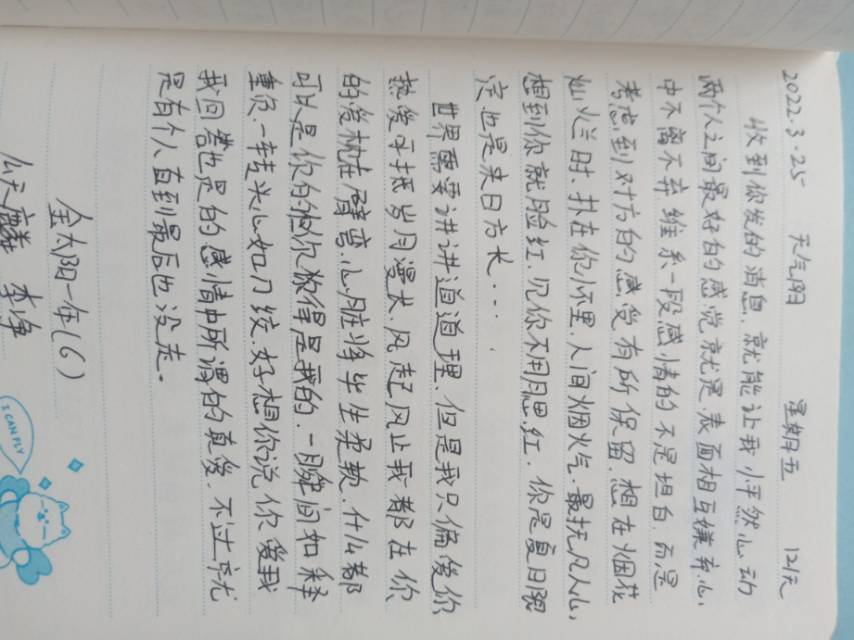 2022.3.25 天气阴 星期五 121天
收到你发的消息,就能让我怦然心动
两个人之间最好的感觉就是,表面相互嫌弃,心
中不离不弃维系一段感情的不是坦白,而是
考虑到对方的感受有所保留,想在烟花
灿烂时,扑在你怀里,人间烟火气,最抚凡人心,
想到你就脸红,见你不用腮红,你是夏日限
定也是来日方长...
世界需要讲讲道道理,但是我只偏爱你
热爱可抵岁月漫长,风起风止我都在你
的爱枕在臂弯,心脏将毕生柔软,什么都
可以是你的但你必得是我的,一瞬间如释
重负,一转头心如刀绞,好想你说你爱我
我回答也是的感情中所谓的真爱,不过就
是有个人直到最后也没走.
金太阳一年(6)
麟 李净
I CAN FLY